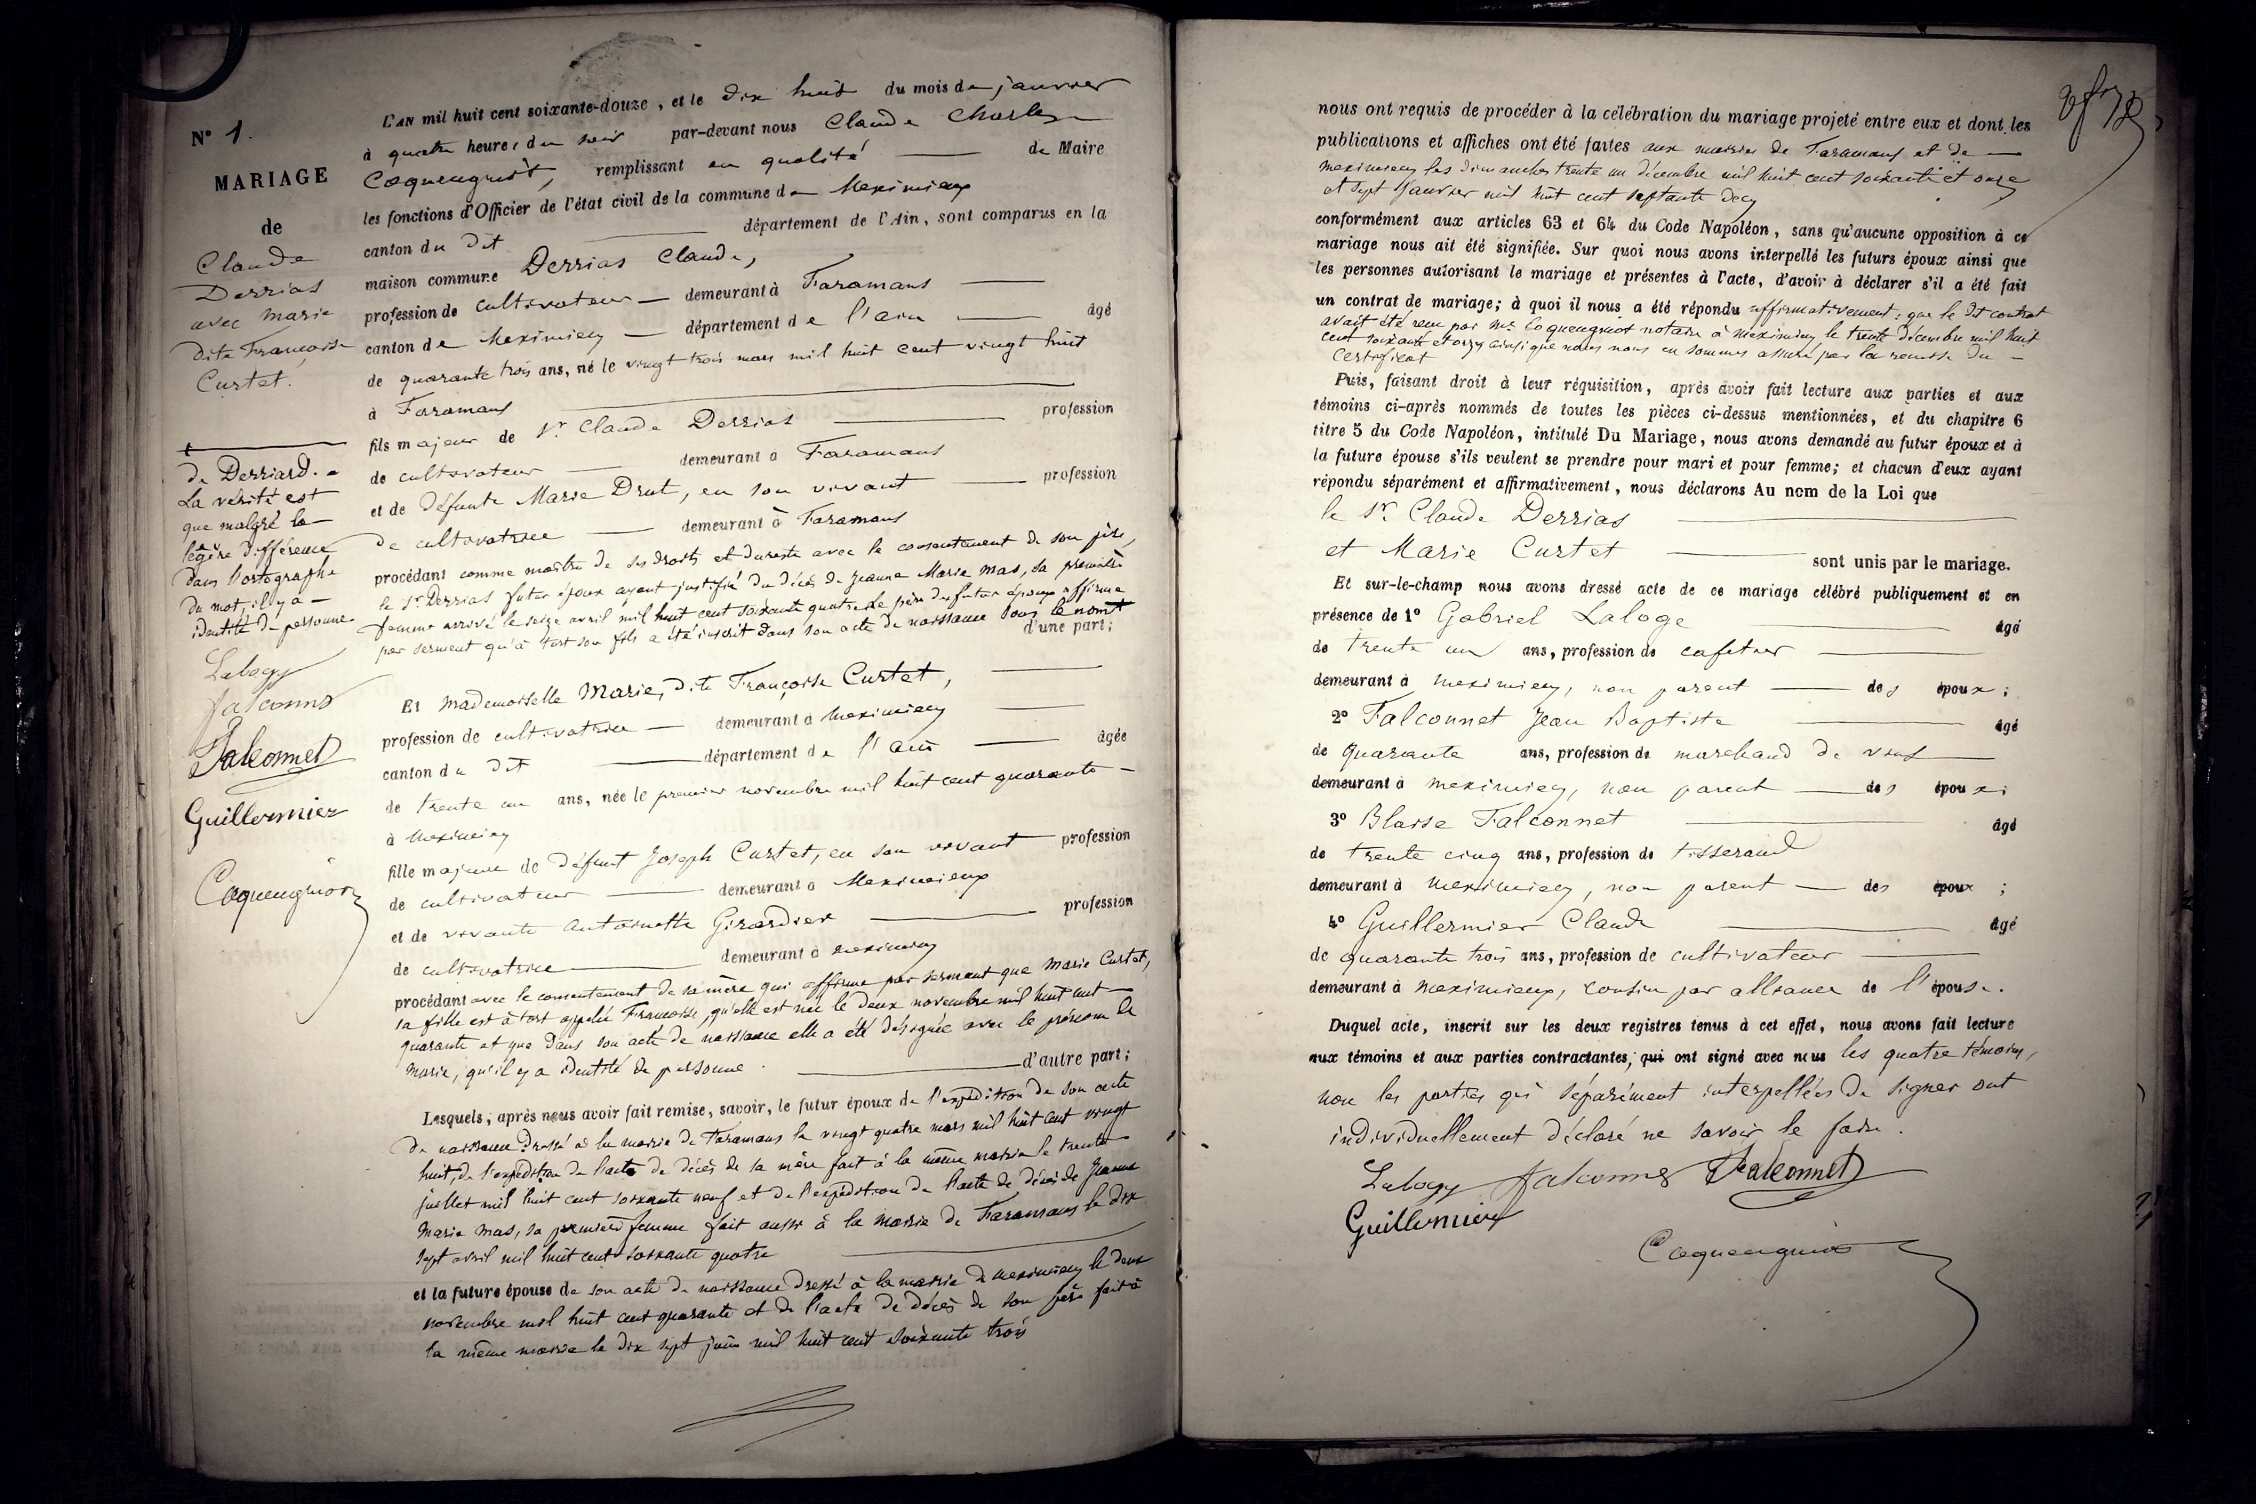 N° 1.
MARIAGE
de
Claude
Derrias
avec Marie
dite Françoise
Curtet.
de Derriard.
La vérité est
que malgré la
légère différence
dans l'ortographe
du mot, il y a
identité de personne
Laloge
Falconnet
Falconnet
Guillermier
Coquengniot
L'AN mil huit cent soixante-douze, et le dix huit du mois de janvier
à quatre heures du soir par-devant nous Claude Charles
Coquengniot, remplissant en qualité de Maire
les fonctions d'Officier de l'état civil de la commune de Meximieux
canton du dit département de l'Ain, sont comparus en la
maison commune Derrias Claude,
profession de cultivateur demeurant à Faramans
canton de Meximieux département de l'ain âgé
de quarante trois ans, né le vingt trois mars mil huit cent vingt huit
à Faramans
fils majeur de Sr. Claude Derrias profession
de cultivateur demeurant à Faramans
et de défunte Marie Drut, en son vivant profession
de cultivatrice demeurant à Faramans
procédant comme maître de ses droits et du reste avec le consentement de son père,
le Sr. Derrias futur époux ayant justifié du décès de Jeanne Marie Mas, sa première
femme arrivé le seize avril mil huit cent soixante quatre. Le père du futur époux affirme
par serment qu'à tort son fils a été inscrit dans son acte de naissance sous le nom
d'une part;
Et Mademoiselle Marie, dite Françoise Curtet,
profession de cultivatrice demeurant à Meximieux
canton du dit département de l'ain âgée
de trente un ans, née le premier novembre mil huit cent quarante
à Meximieux
fille majeure de défunt Joseph Curtet, en son vivant profession
de cultivateur demeurant à Meximieux
et de vivante Antoinette Girardier profession
de cultivatrice demeurant à Meximieux
procédant avec le consentement de sa mère qui affirme par serment que Marie Curtet,
sa fille est à tort appelée Françoise, qu'elle est née le deux novembre mil huit cent
quarante et que dans son acte de naissance elle a été désignée avec le prénom de
Marie, qu'il y a identité de personne. d'autre part;
Lesquels, après nous avoir fait remise, savoir, le futur époux de l'expédition de son acte
de naissance dressé à la mairie de Faramans le vingt quatre mars mil huit cent vingt
huit, de l'expédition de l'acte de décès de sa mère fait à la même mairie le trente
juillet mil huit cent soixante neuf et de l'expédition de l'acte de décès de Jeanne
Marie Mas, sa première femme fait aussi à la mairie de Faramans le dix
sept avril mil huit cent soixante quatre
et la future épouse de son acte de naissance dressé à la mairie de Meximieux le deux
novembre mil huit cent quarante et de l'acte de décès de son père fait à
la même mairie le dix sept juin mil huit cent soixante trois
nous ont requis de procéder à la célébration du mariage projeté entre eux et dont les
publications et affiches ont été faites aux mairies de Faramans et de
Meximieux les dimanches trente un décembre mil huit cent soixante et onze
et sept janvier mil huit cent septante deux
conformément aux articles 63 et 64 du Code Napoléon, sans qu'aucune opposition à ce
mariage nous ait été signifiée. Sur quoi nous avons interpellé les futurs époux ainsi que
les personnes autorisant le mariage et présentes à l'acte, d'avoir à déclarer s'il a été fait
un contrat de mariage; à quoi il nous a été répondu affirmativement; que le dit contrat
avait été reçu par Me. Coquengniot notaire à Meximieux le trente décembre mil huit
cent soixante et onze ainsi que nous nous en sommes assuré par la remise du
Certificat
Puis, faisant droit à leur réquisition, après avoir fait lecture aux parties et aux
témoins ci-après nommés de toutes les pièces ci-dessus mentionnées, et du chapitre 6
titre 5 du Code Napoléon, intitulé Du Mariage, nous avons demandé au futur époux et à
la future épouse s'ils veulent se prendre pour mari et pour femme; et chacun d'eux ayant
répondu séparément et affirmativement, nous déclarons Au nom de la Loi que
le Sr. Claude Derrias
et Marie Curtet sont unis par le mariage.
Et sur-le-champ nous avons dressé acte de ce mariage célébré publiquement et en
présence de 1° Gabriel Laloge âgé
de trente un ans, profession de cafetier
demeurant à Meximieux, non parent des époux;
2° Falconnet Jean Baptiste âgé
de quarante ans, profession de marchand de vins
demeurant à Meximieux, non parent des époux;
3° Blaise Falconnet âgé
de trente cinq ans, profession de tisserand
demeurant à Meximieux, non parent des époux;
4° Guillermier Claude âgé
de quarante trois ans, profession de cultivateur
demeurant à Meximieux, cousin par alliance de l'épouse.
Duquel acte, inscrit sur les deux registres tenus à cet effet, nous avons fait lecture
aux témoins et aux parties contractantes, qui ont signé avec nous les quatre témoins,
non les parties qui séparément interpellées de signer ont
individuellement déclaré ne savoir le faire.
Laloge Falconnet Falconnet
Guillermier
Coquengniot